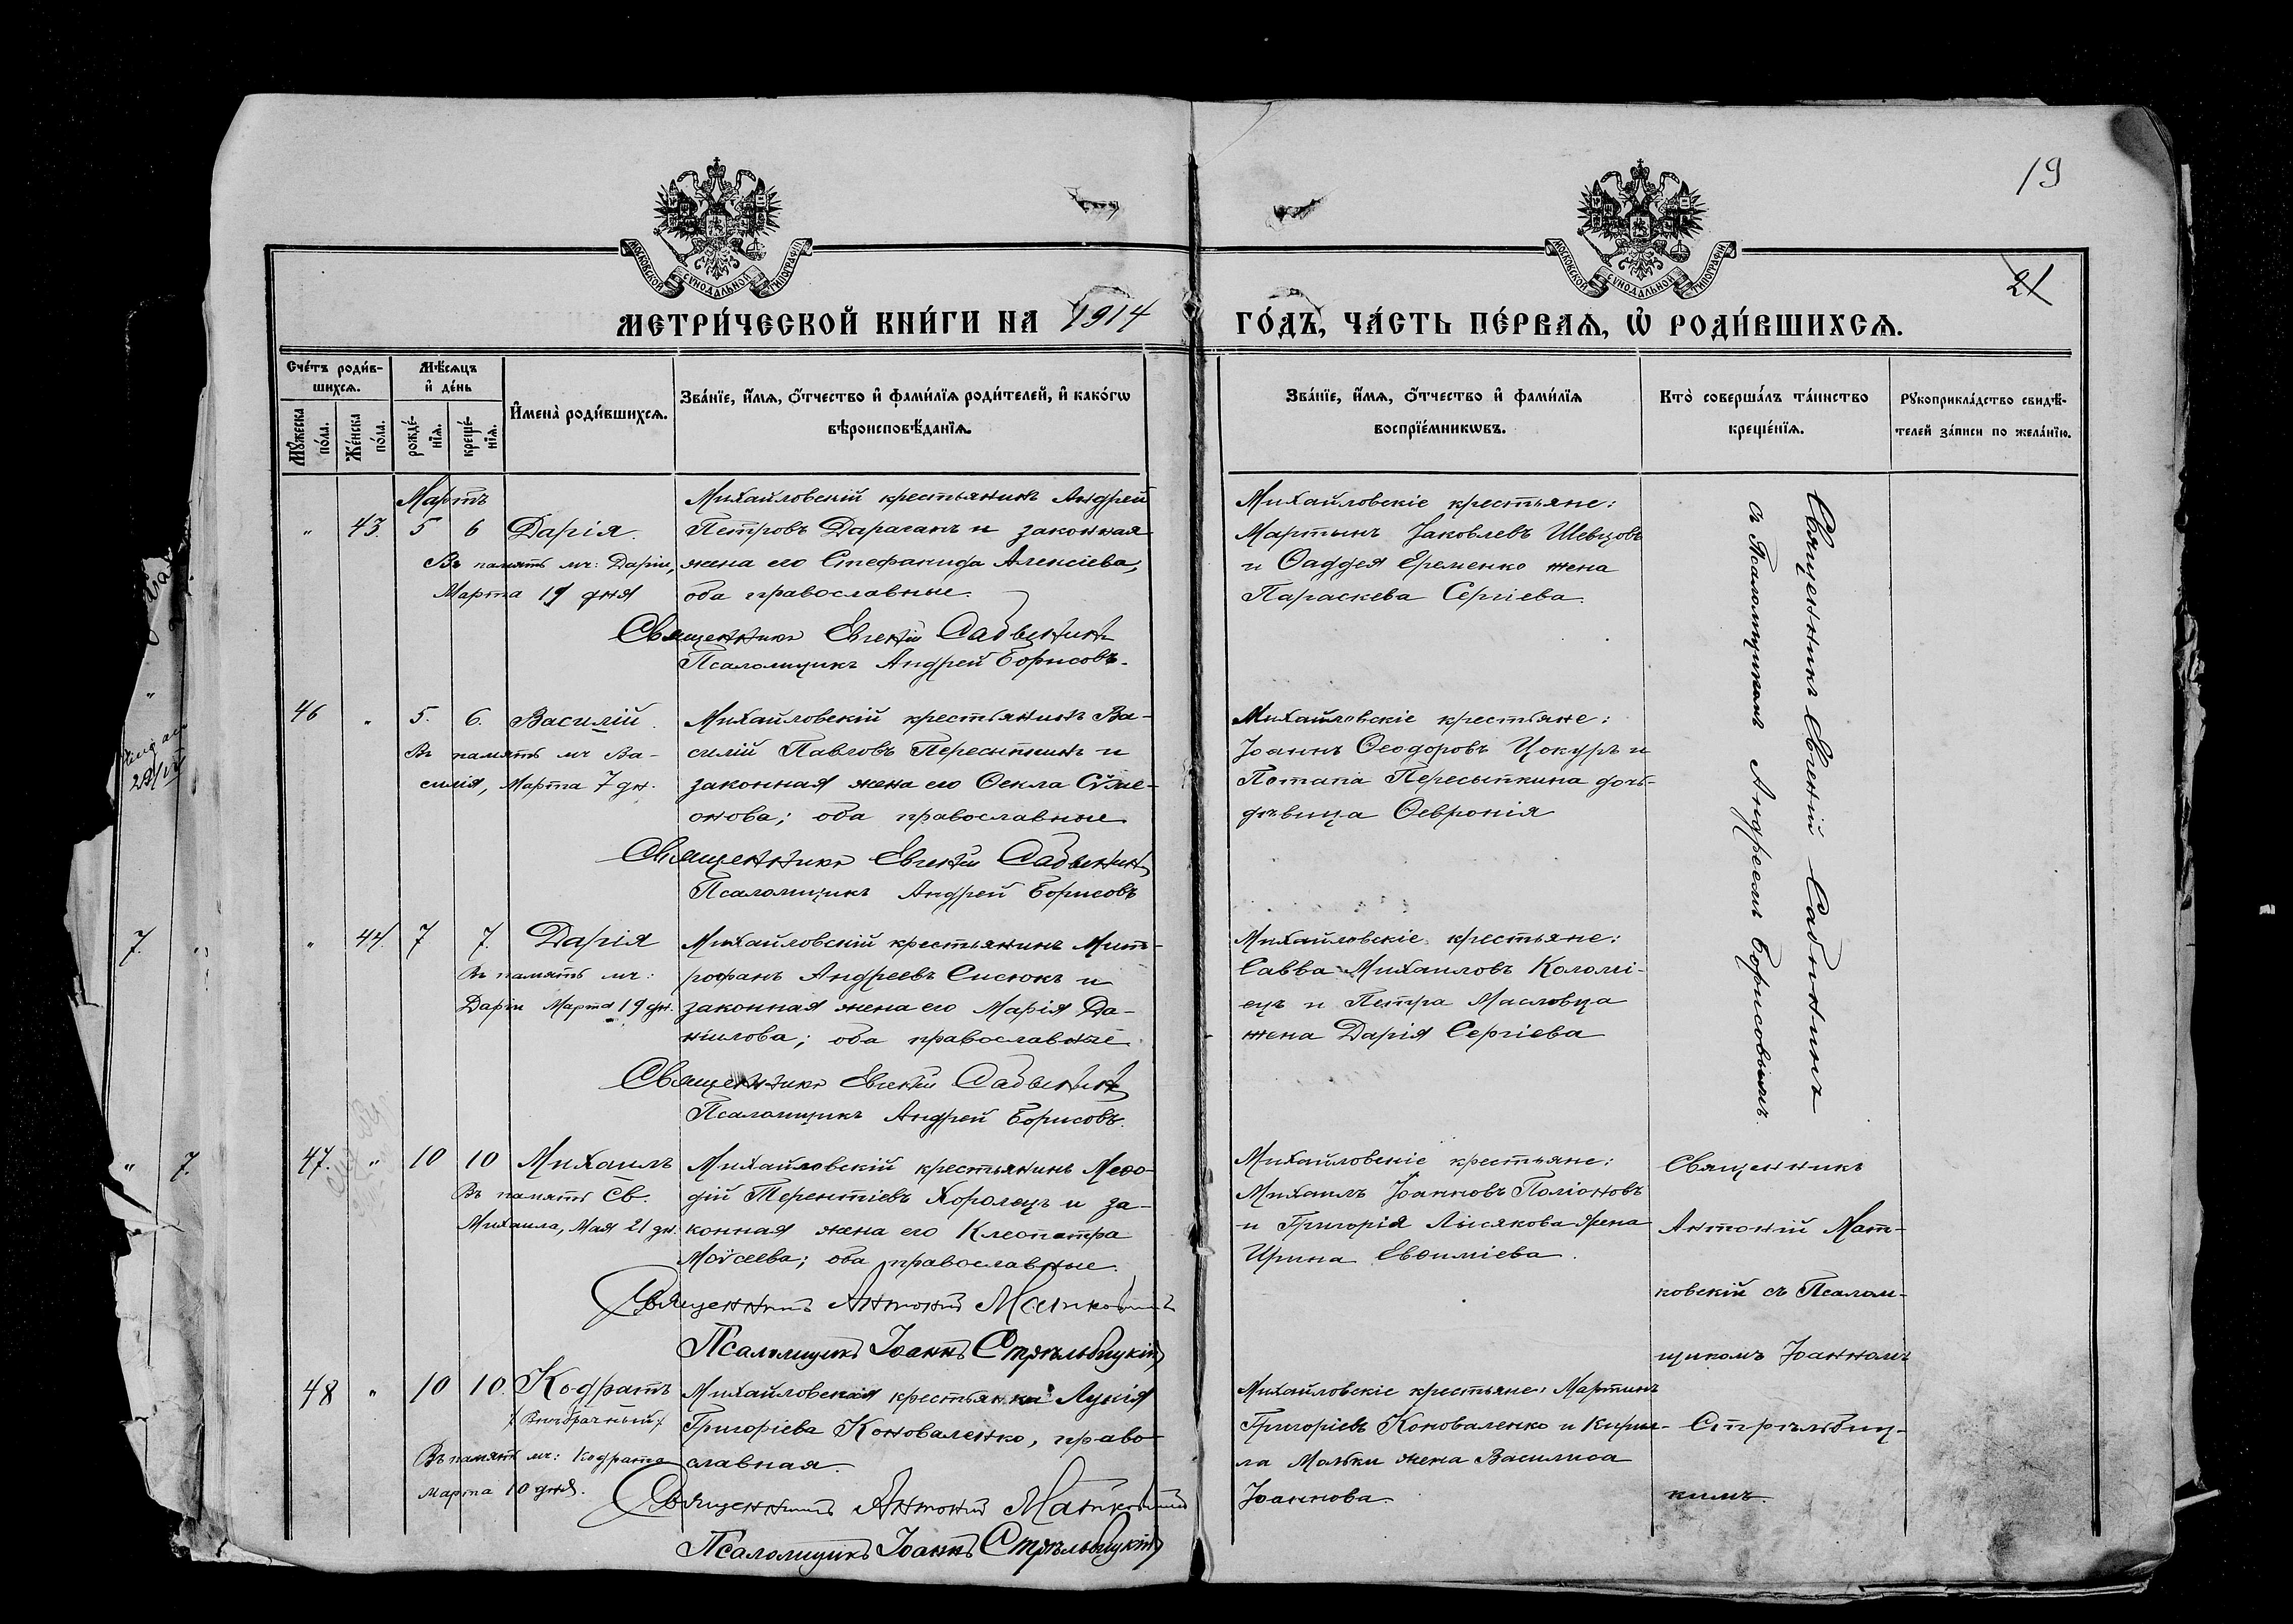 19
21
МОСКОВСКОЙ СѴНОДАЛЬНОЙ ТИПОГРАФІИ
МОСКОВСКОЙ СѴНОДАЛЬНОЙ ТИПОГРАФІИ
МЕТРИ́ЧЕСКОЙ КНИ́ГИ НА 1914 ГО́ДЪ, ЧА́СТЬ ПЕ́РВАѦ, Ѡ҆ РОДИ́ВШИХСѦ.
Сче́тъ роди́в-
шихсѧ.
Мꙋ́жеска по́ла.
Же́нска по́ла.
Мѣ́сѧцъ
и҆ де́нь
рожде́-
нїѧ.
креще́-
нїѧ.
И҆мена̀ роди́вшихсѧ.
Зва́нїе, и҆́мѧ, ѻ҆́тчество и҆ фами́лїѧ роди́телей, и҆ како́гѡ
вѣроисповѣ́данїѧ.
Зва́нїе, и҆́мѧ, ѻ҆́тчество и҆ фами́лїѧ
воспрїе́мникѡвъ.
Кто̀ соверша́лъ та́инство
креще́нїѧ.
Рꙋкоприкла́дство свидѣ́-
телей за́писи по жела́нїю.
Мартъ
" 43. 5 6 Дарія.
Въ память мч: Даріи,
Марта 19 дня
Михайловскій крестьянинъ Андрей
Петровъ Дараганъ и законная
жена его Стефанида Алексіева,
оба православные.
Священникъ Евгеній Савынинъ
Псаломщикъ Андрей Борисовъ.
Михайловскіе крестьяне:
Мартынъ Іаковлевъ Шевцовъ
и Ѳаддея Еременко жена
Параскева Сергіева.
Священникъ Евгеній
съ Псаломщикомъ Андреемъ Борисовымъ.
46 " 5. 6. Василій.
Въ память мч Ва-
силія, Марта 7 дн.
Михайловскій крестьянинъ Ва-
силій Павловъ Пересыпкинъ и
законная жена его Ѳекла Сѵме-
онова; оба православные
Священникъ Евгеній
Псаломщикъ Андрей Борисовъ
Михайловскіе крестьяне:
Іоаннъ Ѳеодоровъ Цокуръ и
Потапа Пересыпкина дочь-
дѣвица Ѳевронія
" 44. 7 7. Дарія
Въ память мч:
Даріи Марта 19 дн.
Михайловскій крестьянинъ Мит-
рофанъ Андреевъ Сисюкъ и
законная жена его Марія Да-
ніилова; оба православные
Священникъ Евгеній
Псаломщикъ Андрей Борисовъ.
Михайловскіе крестьяне:
Савва Михаиловъ Коломі-
ецъ и Петра Масловца
жена Дарія Сергіева
47. " 10 10 Михаилъ
Въ память Св.
Михаила, Мая 21 дн.
Михайловскій крестьянинъ Меѳо-
дій Терентіевъ Хоролецъ и за-
конная жена его Клеопатра
Моѵсеева; оба православные.
Священникъ Антоній Матковскій
Псаломщикъ Іоаннъ Стрѣльбицкій
Михайловскіе крестьяне:
Михаилъ Іоанновъ Поліоновъ
и Григорія Лысякова жена
Ирина Евѳиміева.
Священникъ
Антоній Мат-
ковскій съ Псалом-
щикомъ Іоанномъ
Стрѣльбиц-
кимъ.
48 " 10 10. Кодратъ
/Внѣбрачный/
Въ память мч: Кодрата
марта 10 дня.
Михайловская крестьянка Лукія
Григоріева Коноваленко, право-
славная.
Священникъ Антоній Матковскій
Псаломщикъ Іоаннъ Стрѣльбицкій
Михайловскіе крестьяне: Мартинъ
Григоріевъ Коноваленко и Кирил-
ла Мальки жена Василиса
Іоаннова.
7.
" 7.